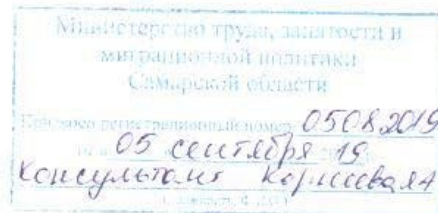 Министерство труда, занятости и
миграционной политики
Самарской области
регистрационный номер 05082019
05 сентября 19
Консультант